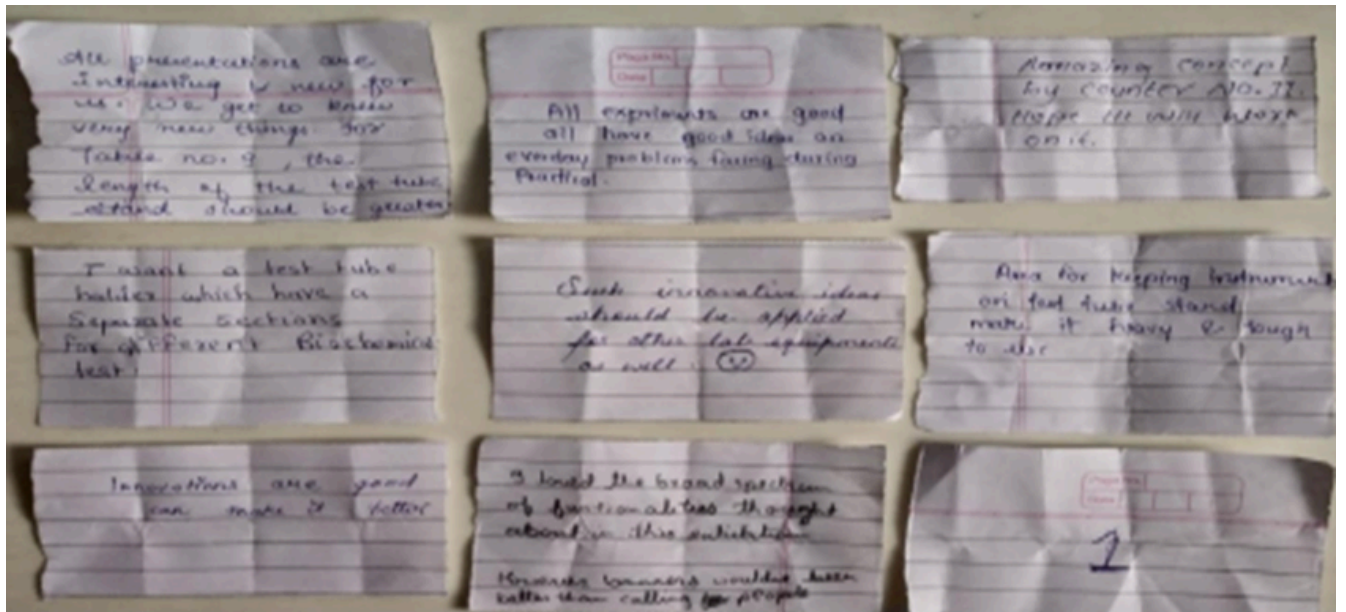 All presentations are
interesting & new for
us. We get to know
very new things. for
Table no. 9, the
length of the test tube
stand should be greater
Page No.
Date
All expriments are good
all have good ideas on
everday problems facing during
Practical.
Amazing concept
by counter NO. II.
Hope U will work
on it.
I want a test tube
holder which have a
Separate sections
for different Biochemical
test.
Such innovative ideas
should be applied
for other lab equipments
as well.
Area for keeping instrument
on test tube stand
make it heavy & tough
to use
Innovations are good
can make it better
I loved the broad spectrum
of functionalities thought
about in this exhibition
However banners would've been
better than calling people
Page No.
Date
1